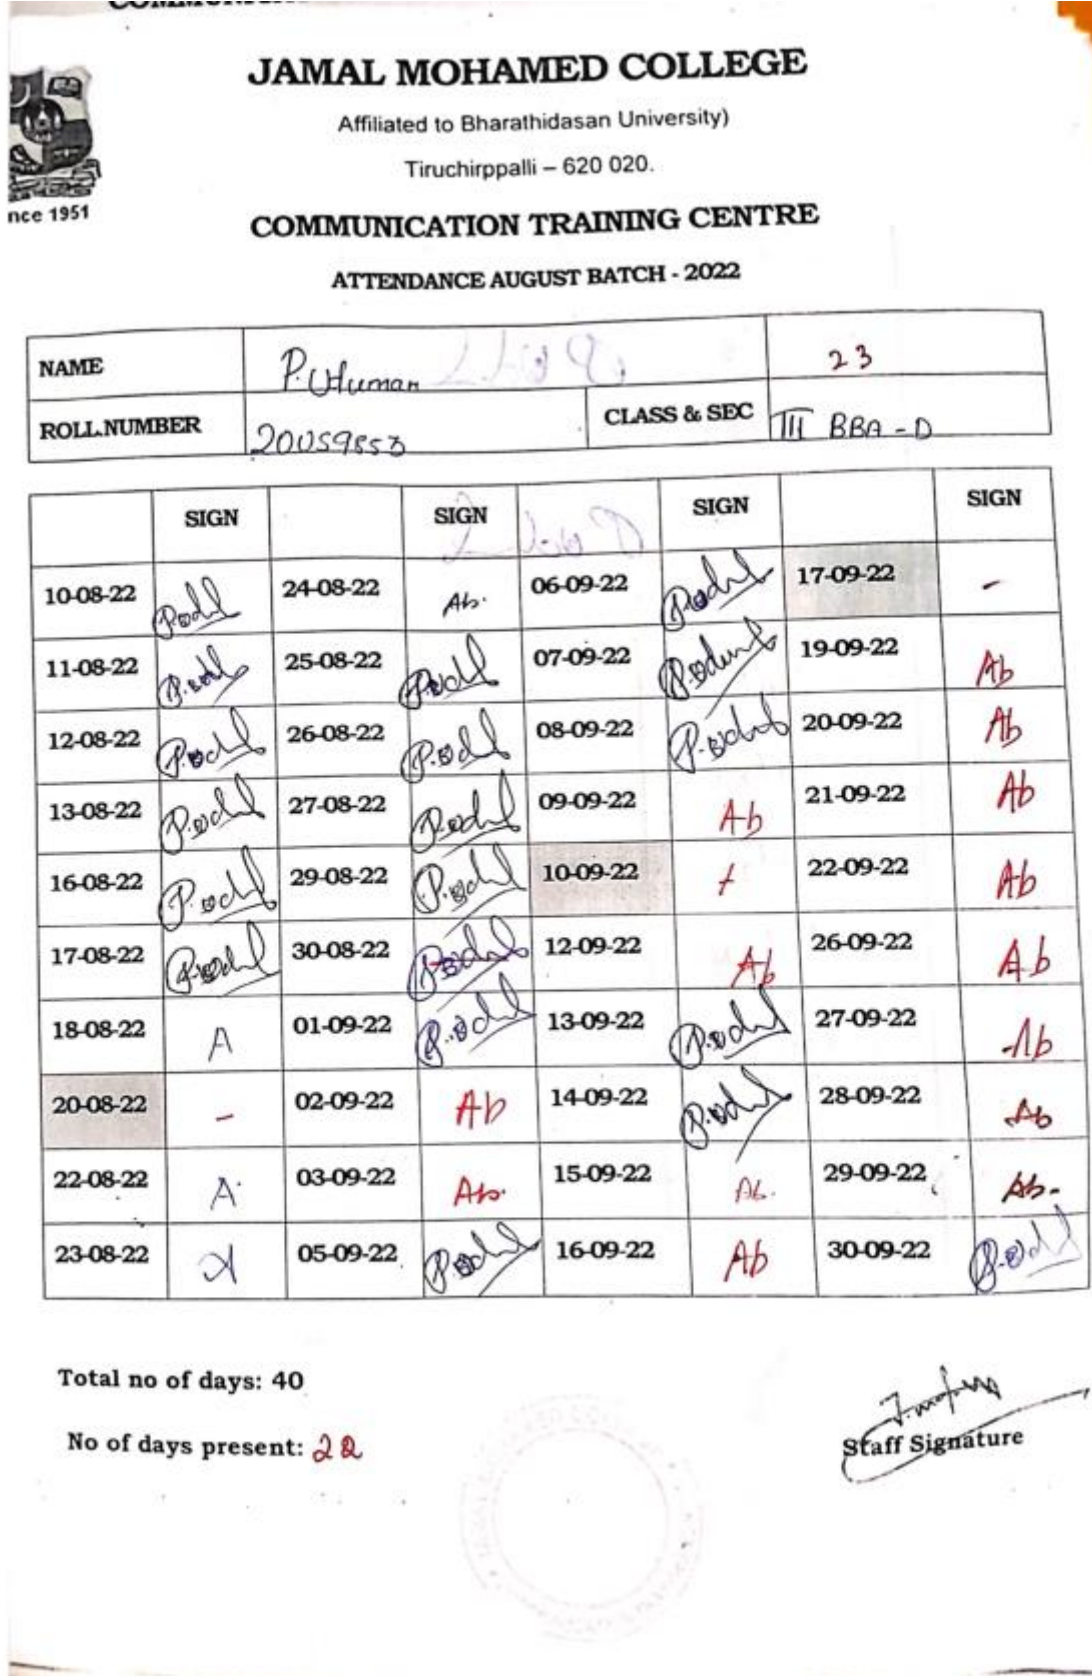 JAMAL MOHAMED COLLEGE
Affiliated to Bharathidasan University)
Tiruchirppalli – 620 020.
nce 1951
COMMUNICATION TRAINING CENTRE
ATTENDANCE AUGUST BATCH - 2022
NAME P. Uthuman 23
ROLL.NUMBER 20059853 CLASS & SEC III BBA - D
SIGN SIGN SIGN SIGN
10-08-22 24-08-22 Ab. 06-09-22 17-09-22 -
11-08-22 25-08-22 07-09-22 19-09-22 Ab
12-08-22 26-08-22 08-09-22 20-09-22 Ab
13-08-22 27-08-22 09-09-22 Ab 21-09-22 Ab
16-08-22 29-08-22 10-09-22 22-09-22 Ab
17-08-22 30-08-22 12-09-22 Ab 26-09-22 Ab
18-08-22 A 01-09-22 13-09-22 27-09-22 Ab
20-08-22 - 02-09-22 Ab 14-09-22 28-09-22 Ab
22-08-22 A 03-09-22 Ab. 15-09-22 Ab. 29-09-22 Ab-
23-08-22 A 05-09-22 16-09-22 Ab 30-09-22
Total no of days: 40
No of days present: 22
Staff Signature